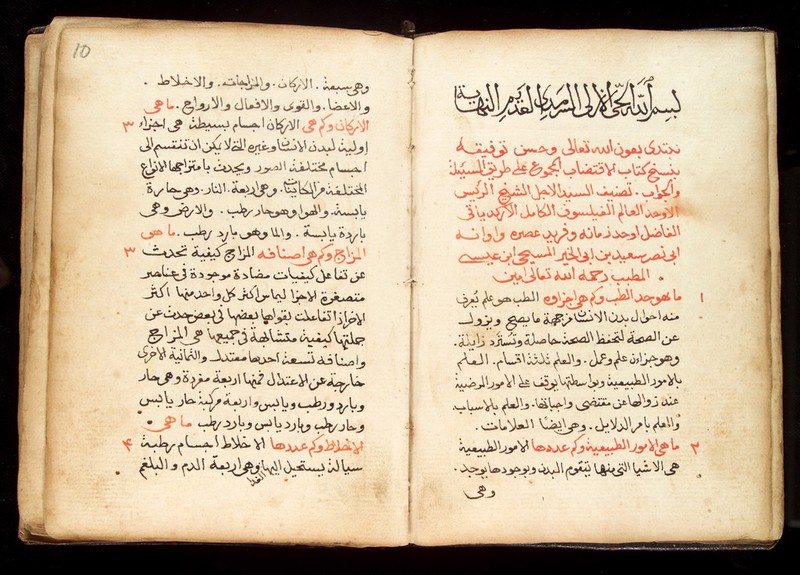 بسم الله الحي الازلي السرمدي القديم النهاية
نبتدى بعون الله تعالى وحسن توفيقه
بنسخ كتاب الاقتضاب المجموع على طريق المسئلة
والجواب. تصنيف السيد الاجل الشيخ الرئيس
الاوحد العالم الفيلسوف الكامل
الفاضل اوحد زمانه وفريد عصره واوانه
ابى نصر سعيد بن ابى الخير المسيحي ابن عيسى
المطبب رحمه الله تعالى امين
١ ما هو حد الطب وكم هي اجزاوه الطب هو علم يُعرف
منه احوال بدن الانسان من جهة ما يصح ويزول
عن الصحة لتحفظ الصحة حاصلة وتسترد زايلة.
وهو جزان علم وعمل. والعلم ثلثة اقسام. العلم
بالامور الطبيعية وبواسطتها يوقف على الامور المرضية
عند زوالها عن مقتضى واجباتها. والعلم بالاسباب.
والعلم بامر الدلايل. وهي ايضا العلامات.
٢ ما هي الامور الطبيعية وكم عددها الامور الطبيعية
هي الاشيا التى منها يتقوم البدن وبوجودها يوجد.
وهى
10
وهى سبعة. الاركان. والمزاجات. والاخلاط.
والاعضا. والقوى والافعال والارواح. ما هى
الاركان وكم هي الاركان اجسام بسيطة هى اجزاء ٣
اولية لبدن الانسان وغيره التى لا يمكن ان تنقسم الى
اجسام مختلفة الصور ويحدث بامتزاجها الانواع
المختلفة من الكاينات. وهى اربعة. النار. وهى حارة
يابسة. والهوا وهو حار رطب. والارض وهى
باردة يابسة. والما وهو بارد رطب. ما هى
المزاج وكم هى اصنافه المزاج كيفية تحدث ٣
عن تفاعل كيفيات مضادة موجودة في عناصر
متصغرة الاجزا ليماس اكثر كل واحد منها اكثر
الاخر اذا تفاعلت بقواها بعضها فى بعض حدث عن
جملتها كيفية متشابهة فى جميعها هى المزاج
واصنافه تسعة احدها معتدل والثمانية الاخرى
خارجة عن الاعتدال فمنها اربعة مفردة وهى حار
وبارد ورطب ويابس واربعة مركبة حار يابس
وحار رطب وبارد يابس وبارد رطب ما هى
الاخلاط وكم عددها الاخلاط اجسام رطبة ۴
سيالة يستحيل اليها الغذا وهى اربعة الدم والبلغم